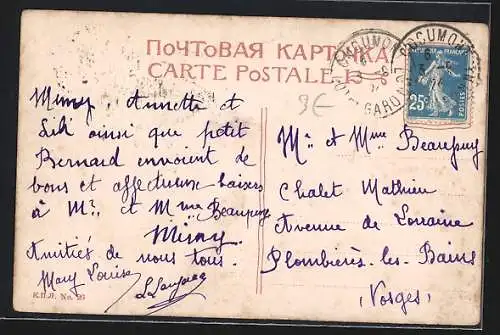 ПОЧТОВАЯ КАРТОЧКА
CARTE POSTALE
ROCUMO
GARONNE
25c
POSTES
9€
Mimy, Annette et
Lili ainsi que petit
Bernard envoient de
bons et affectueux baisers
à Mr. et Mme Beaupuy
Mimy.
Amitiés de nous tous.
Mary Louise
Mr et Mme Beaupuy
Chalet Mathieu
Avenue de Lorraine
Plombières-les-Bains
(Vosges)